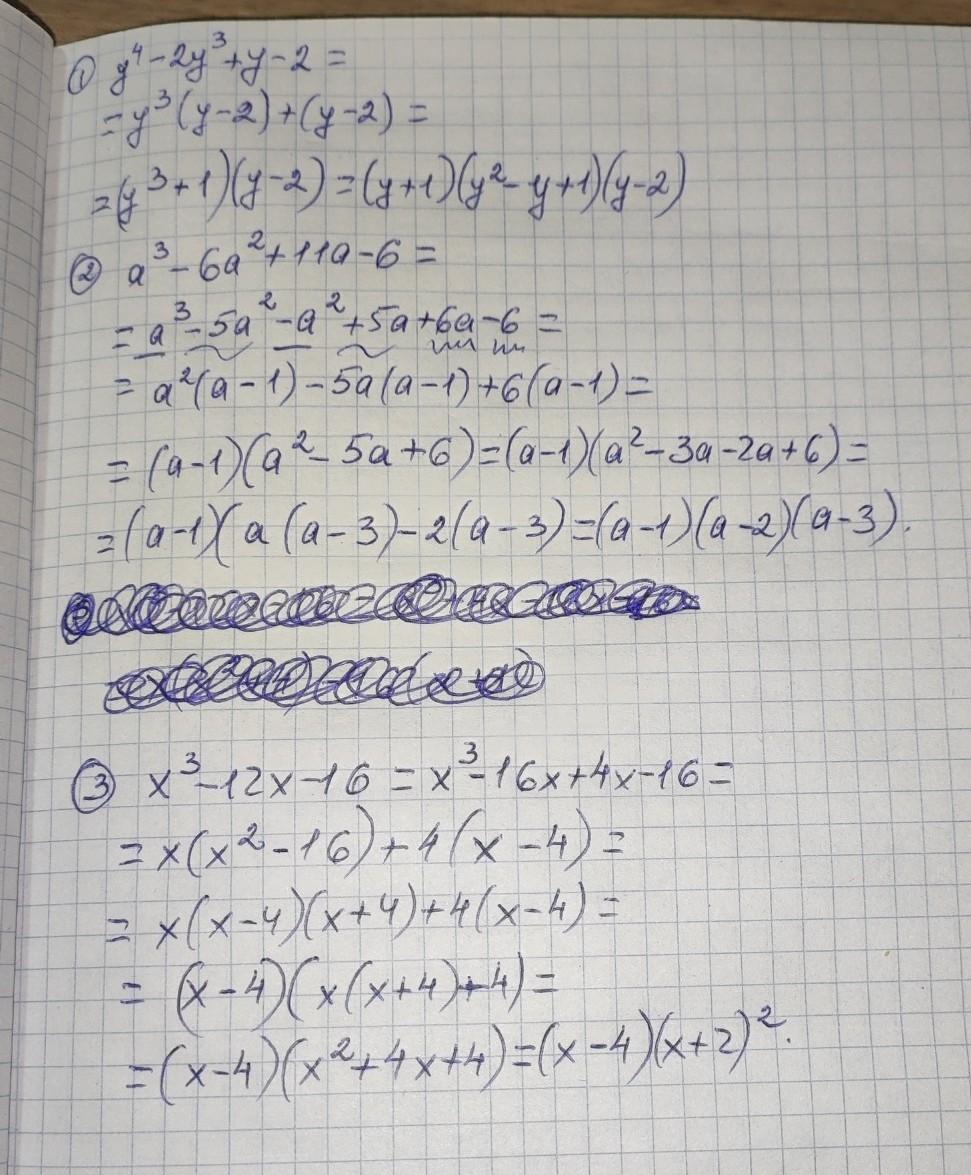 ① y⁴-2y³+y-2=
=y³(y-2)+(y-2)=
=(y³+1)(y-2)=(y+1)(y²-y+1)(y-2)
② a³-6a²+11a-6=
=a³-5a²-a²+5a+6a-6=
=a²(a-1)-5a(a-1)+6(a-1)=
=(a-1)(a²-5a+6)=(a-1)(a²-3a-2a+6)=
=(a-1)(a(a-3)-2(a-3)=(a-1)(a-2)(a-3).
③ x³-12x-16=x³-16x+4x-16=
=x(x²-16)+4(x-4)=
=x(x-4)(x+4)+4(x-4)=
=(x-4)(x(x+4)+4)=
=(x-4)(x²+4x+4)=(x-4)(x+2)².